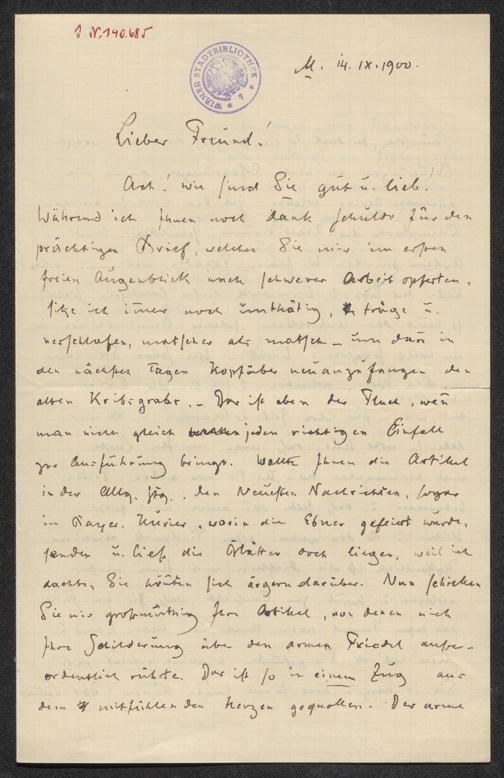 J.N. 140.685
WIENER STADTBIBLIOTHEK
M. 14. IX. 1900.
Lieber Freund!
Ach! wie sind Sie gut u. lieb!
Während ich Ihnen noch Dank schulde für den
prächtigen Brief, welchen Sie mir im ersten
freien Augenblick nach schwerer Arbeit opferten,
sitze ich immer noch unthätig, träge u.
verschlafen, matscher als matsch – um dann in
den nächsten Tagen kopfüber neuanzufangen den
alten . – Das ist eben der Fluch, wenn
man nicht gleich jeden richtigen Einfall
zur Ausführung bringt. Wollte Ihnen die Artikel
in der Allg. Ztg., den Neuesten Nachrichten, sogar
im Bayer. Kurier, worin die Ebner gefeiert wurde,
senden u. ließ die Blätter doch liegen, weil ich
dachte, Sie könnten sich ärgern darüber. Nun schicken
Sie mir großmüthig Ihre Artikel, von denen mich
Ihre Schilderung über den armen Friedel außer-
ordentlich rührte. Das ist so in einem Zug aus
dem mitfühlenden Herzen gequollen. Der arme